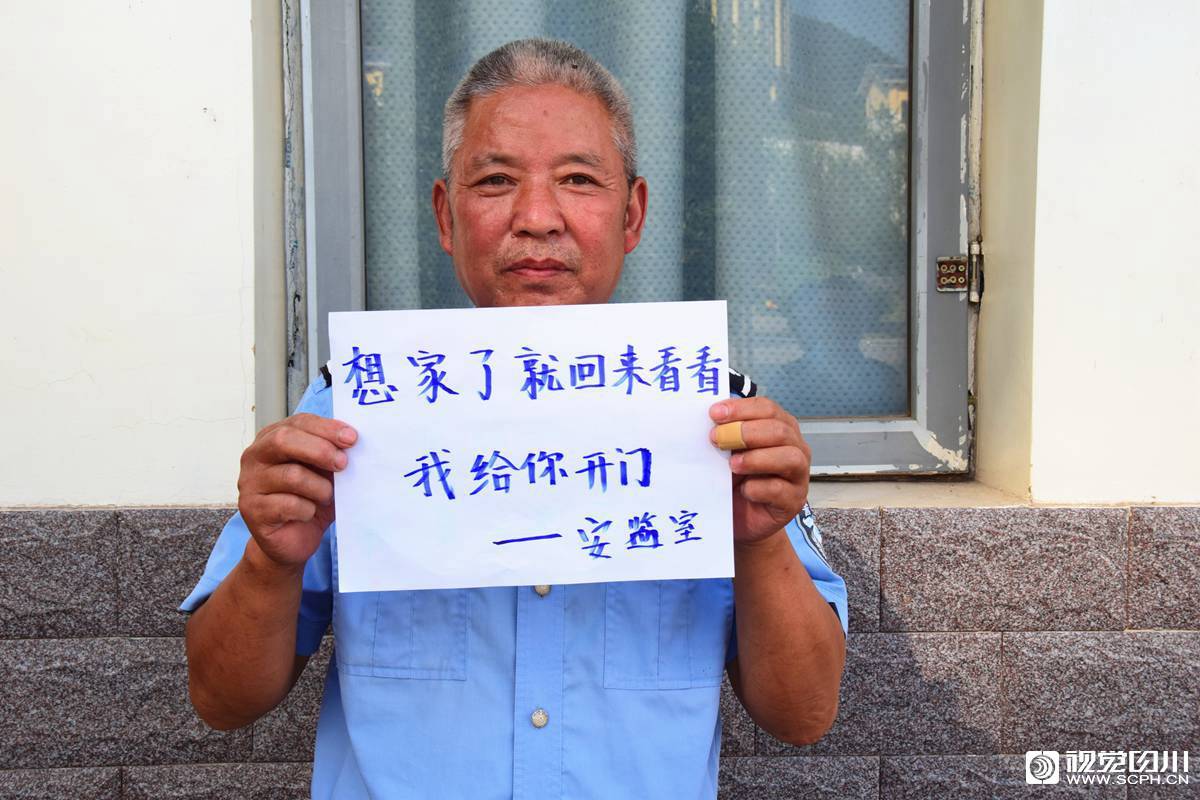 想家了就回来看看
我给你开门
——安监室
视觉四川
WWW.SCPH.CN